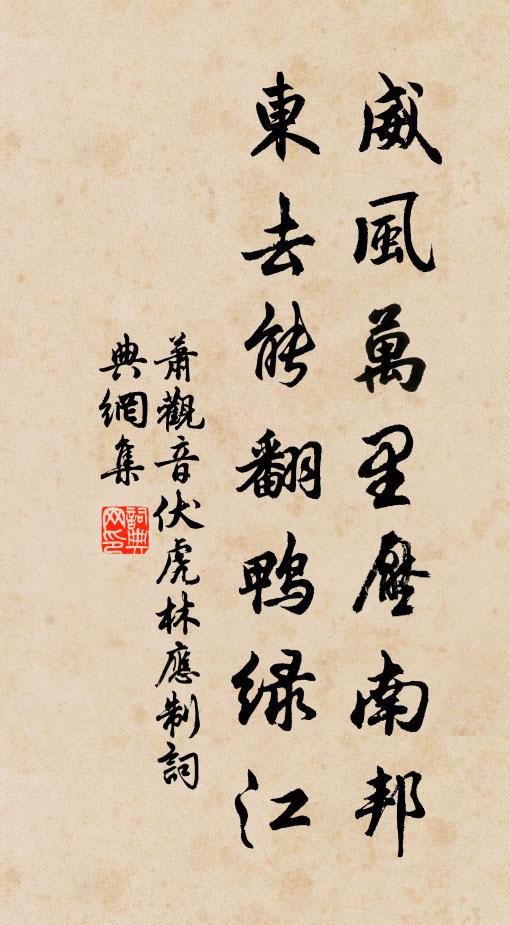 威風萬里壓南邦
東去能翻鴨綠江
蕭觀音伏虎林應制詞
典網集
詞典
网印